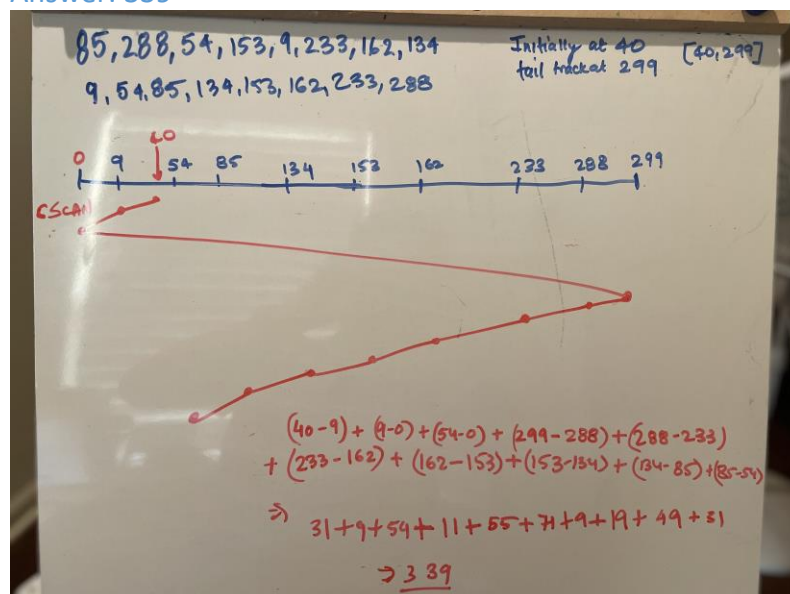 85, 288, 54, 153, 9, 233, 162, 134
9, 54, 85, 134, 153, 162, 233, 288
Initially at 40 [40, 299]
tail track at 299
40
0 9 54 85 134 153 162 233 288 299
CSCAN
(40-9) + (9-0) + (54-0) + (299-288) + (288-233)
+ (233-162) + (162-153) + (153-134) + (134-85) + (85-54)
⇒ 31+9+54+11+55+71+9+19+49+31
→ 339